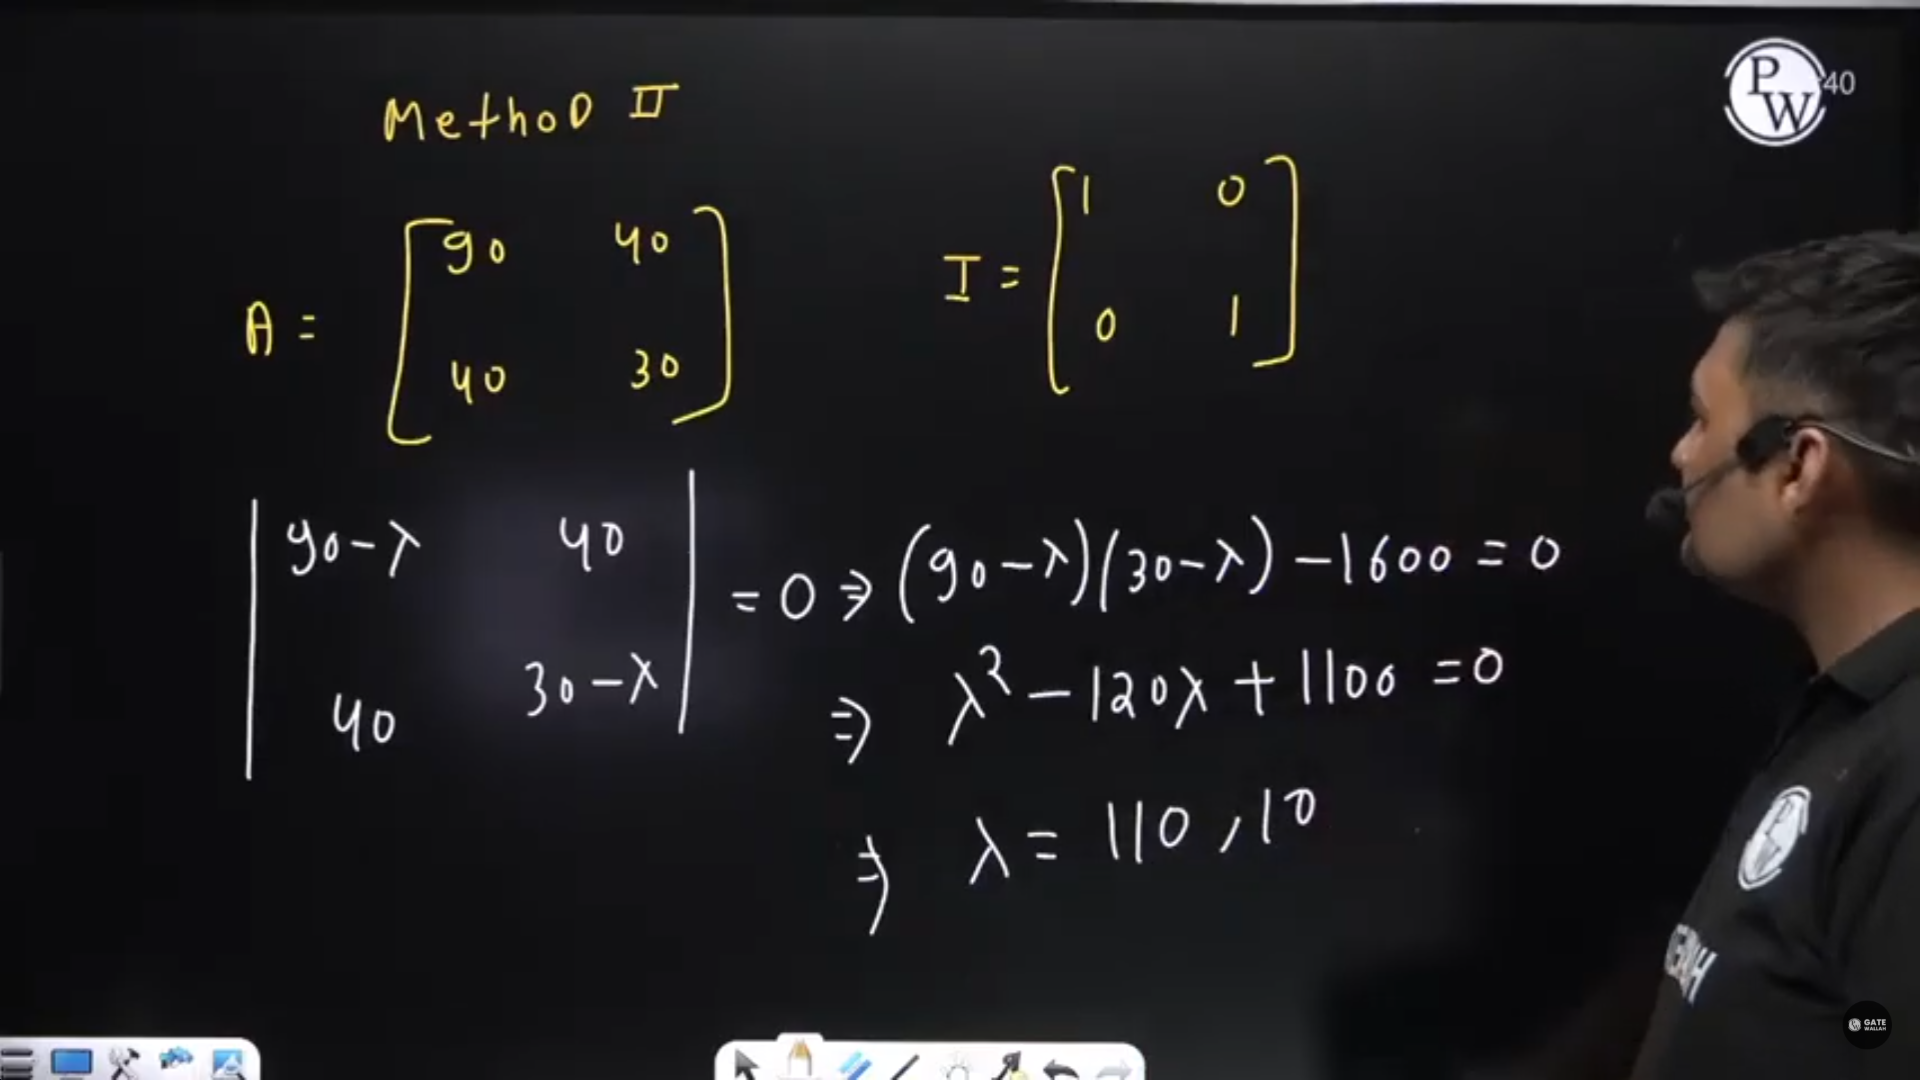 PW
40
MethoD II
A = [ 90 40
40 30 ]
I = [ 1 0
0 1 ]
| 90-λ 40
40 30-λ | = 0 ⇒ (90-λ)(30-λ) - 1600 = 0
⇒ λ² - 120λ + 1100 = 0
⇒ λ = 110, 10
GATE
WALLAH